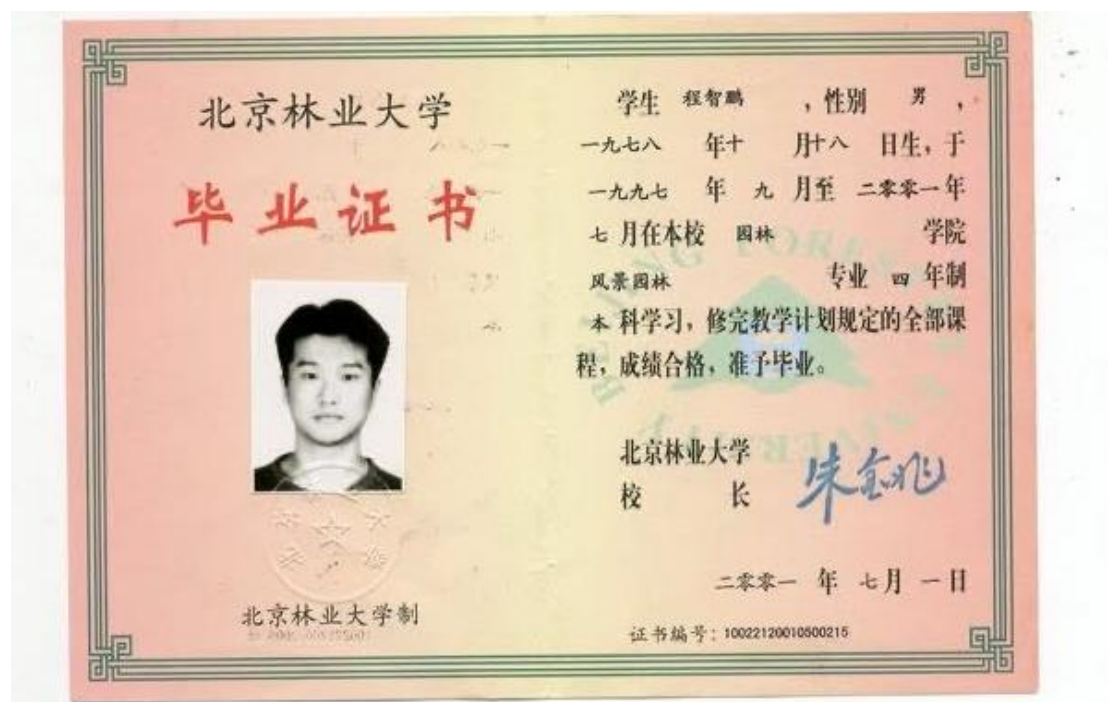 北京林业大学
毕业证书
北京林业大学制
学生 程智鹏 ，性别 男 ，
一九七八 年十 月十八 日生，于
一九九七 年 九 月至 二零零一年
七 月在本校 园林 学院
风景园林 专业 四 年制
本 科学习，修完教学计划规定的全部课
程，成绩合格，准予毕业。
北京林业大学
校 长 朱金兆
二零零一 年 七月 一日
证书编号：10022120010500215